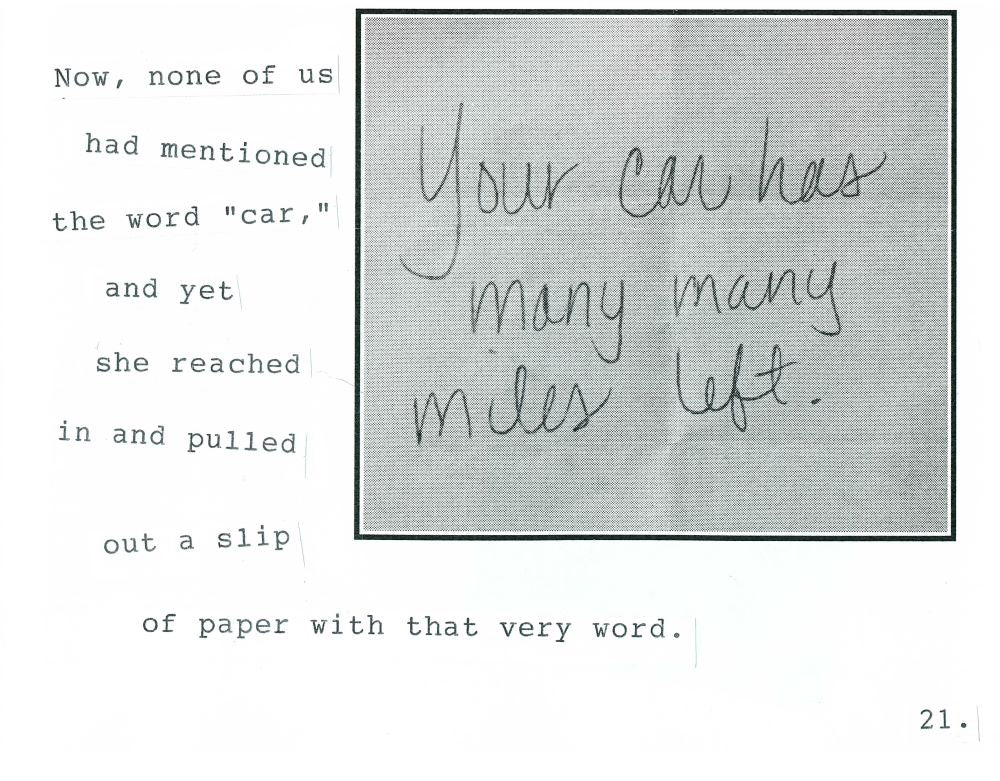 Now, none of us
had mentioned
the word "car,"
and yet
she reached
in and pulled
out a slip
of paper with that very word.
Your car has
many many
miles left.
21.